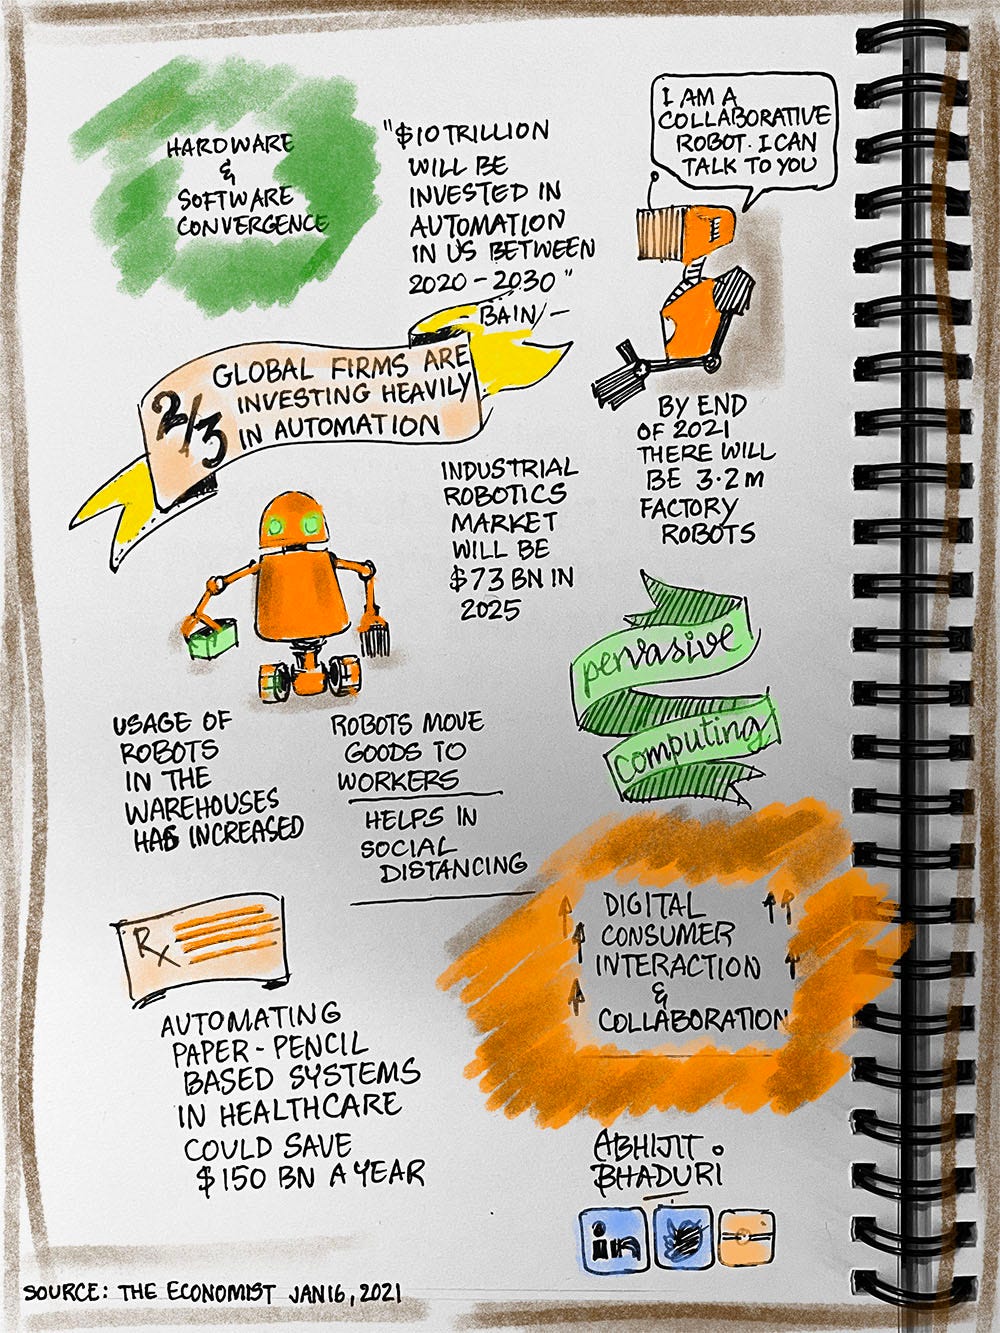 HARDWARE
&
SOFTWARE
CONVERGENCE
"$10 TRILLION
WILL BE
INVESTED IN
AUTOMATION
IN US BETWEEN
2020-2030"
BAIN/-
I AM A
COLLABORATIVE
ROBOT. I CAN
TALK TO YOU
2/3
GLOBAL FIRMS ARE
INVESTING HEAVILY
IN AUTOMATION
BY END
OF 2021
THERE WILL
BE 3.2m
FACTORY
ROBOTS
INDUSTRIAL
ROBOTICS
MARKET
WILL BE
$73 BN IN
2025
pervasive
computing
USAGE OF
ROBOTS
IN THE
WAREHOUSES
HAS INCREASED
ROBOTS MOVE
GOODS TO
WORKERS
HELPS IN
SOCIAL
DISTANCING
DIGITAL
CONSUMER
INTERACTION
&
COLLABORATION
Rx
AUTOMATING
PAPER-PENCIL
BASED SYSTEMS
IN HEALTHCARE
COULD SAVE
$150 BN A YEAR
ABHIJIT
BHADURI
in
SOURCE: THE ECONOMIST JAN 16, 2021